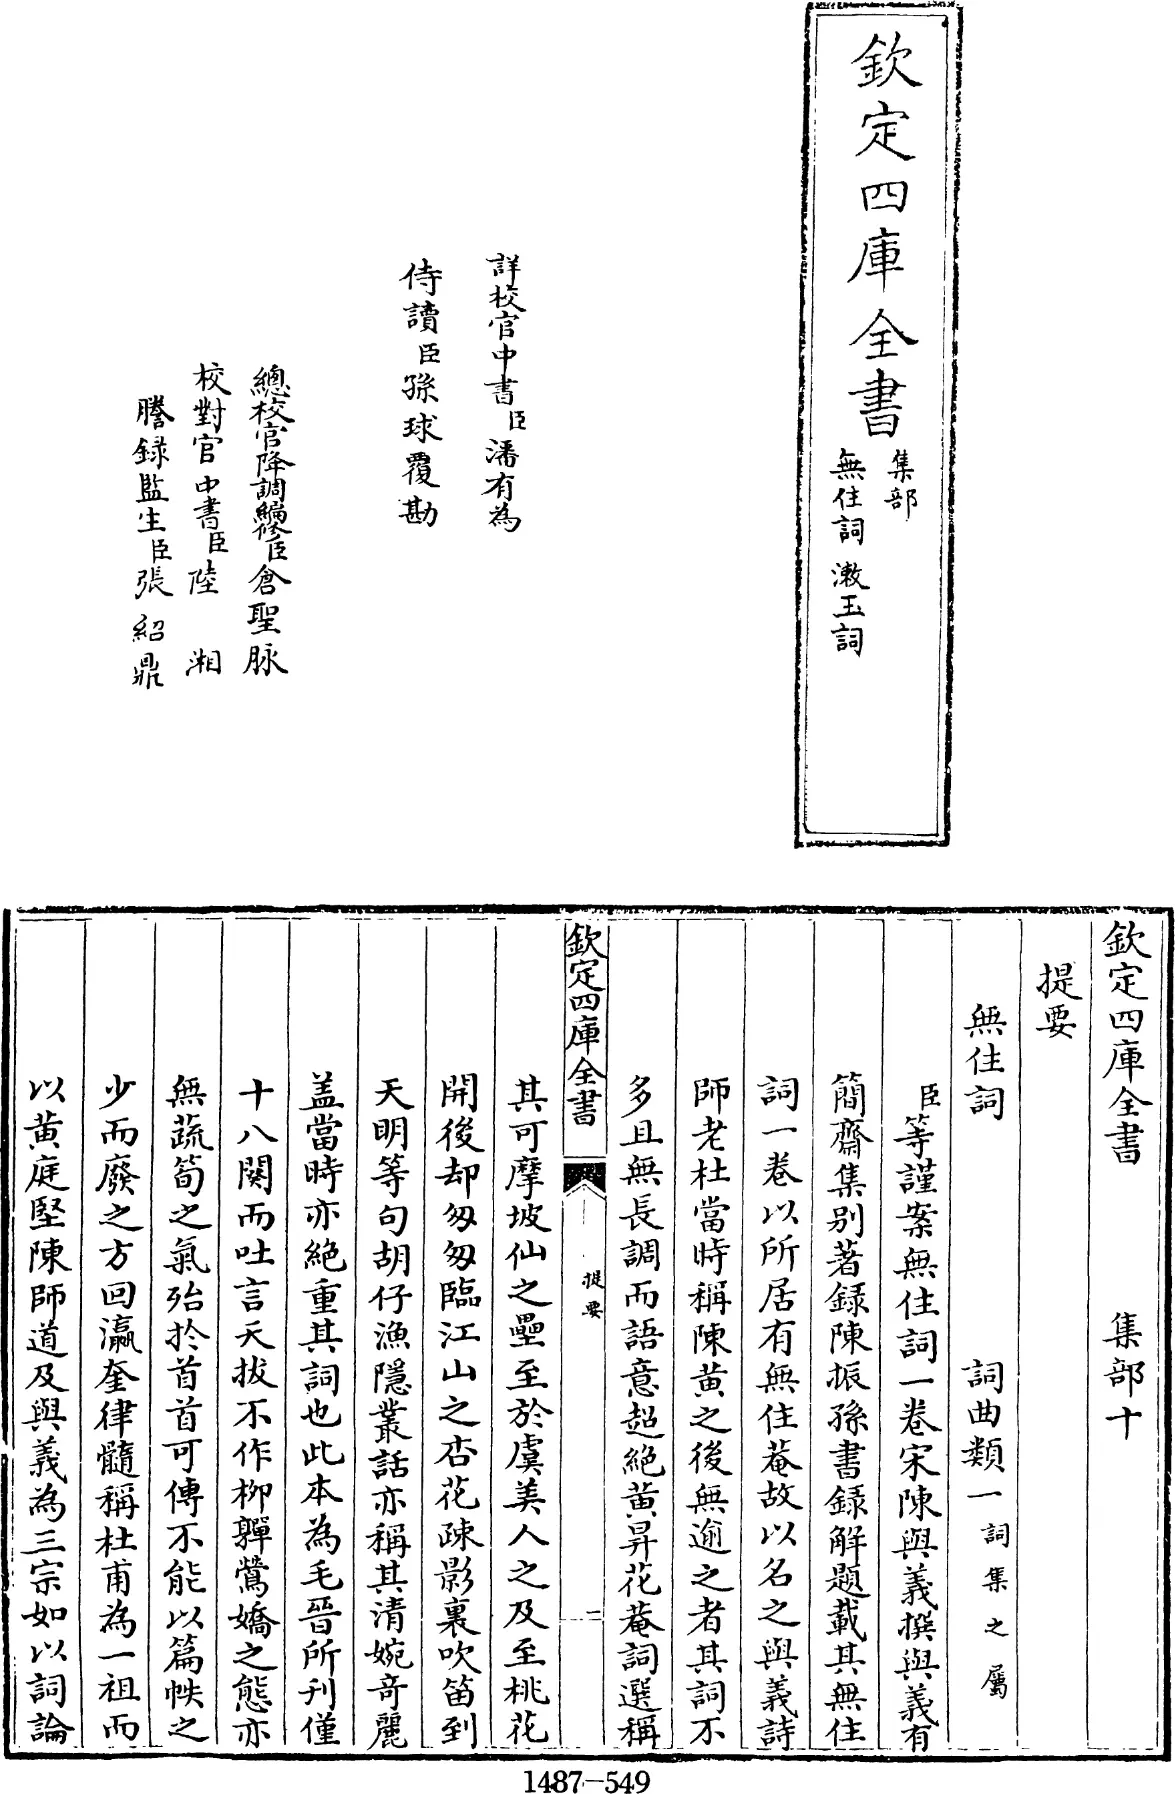 欽定四庫全書
集部
無住詞 漱玉詞
詳校官中書臣潘有為
侍讀臣孫球覆勘
總校官降調編修臣倉聖脉
校對官中書臣陸湘
謄録監生臣張紹鼎
欽定四庫全書 集部十
提要
無住詞 詞曲類一 詞集之屬
臣等謹案無住詞一卷宋陳與義撰與義有
簡齋集别著録陳振孫書録解題載其無住
詞一卷以所居有無住菴故以名之與義詩
師老杜當時稱陳黄之後無逾之者其詞不
多且無長調而語意超絶黄昇花菴詞選稱
欽定四庫全書
提要
二
其可摩坡仙之壘至於虞美人之及至桃花
開後却匆匆臨江山之杏花疎影裏吹笛到
天明等句胡仔漁隱叢話亦稱其清婉奇麗
盖當時亦絶重其詞也此本為毛晉所刊僅
十八闋而吐言天拔不作柳嚲鶯嬌之態亦
無蔬筍之氣殆於首首可傳不能以篇帙之
少而廢之方回瀛奎律髓稱杜甫為一祖而
以黄庭堅陳師道及與義為三宗如以詞論
1487-549